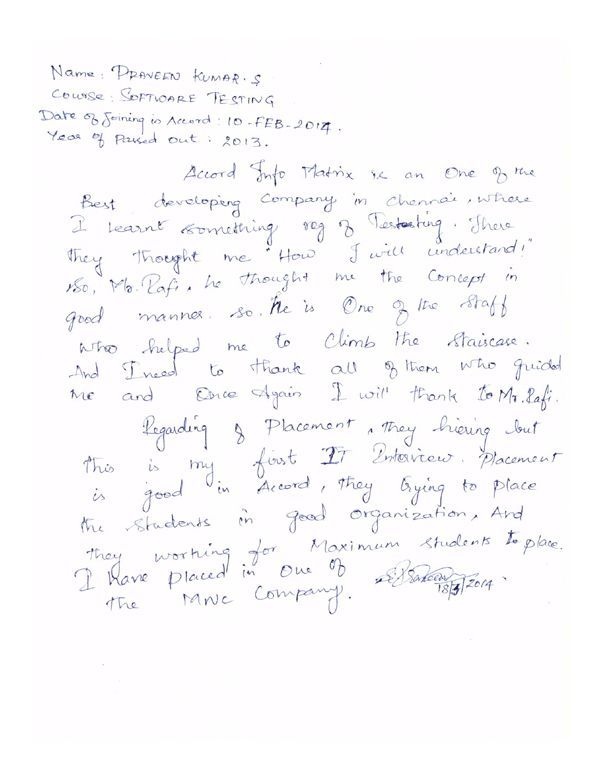 Name: PRAVEEN KUMAR. S
Course: SOFTWARE TESTING
Date of Joining in Accord: 10-FEB-2014.
Year of Passed out: 2013.
Accord Info Matrix is an One of the
Best developing Company in Chennai, where
I learnt something reg of Testing. There
they thought me "How I will understand!"
So, Mr. Rafi, he thought me the Concept in
good manner. So, he is One of the Staff
who helped me to Climb the Staiscase.
And I need to thank all of them who guided
Me and Once Again I will thank to Mr. Rafi.
Regarding of Placement, they hiering but
this is my first IT Interview. Placement
is good in Accord, they trying to place
the Students in good Organization, And
they working for Maximum Students to place.
I have placed in One of
the MNC Company.
18/3/2014.